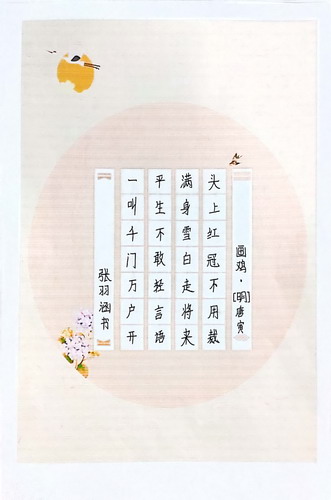 画鸡·[明]唐寅
头上红冠不用裁
满身雪白走将来
平生不敢轻言语
一叫千门万户开
张羽涵书